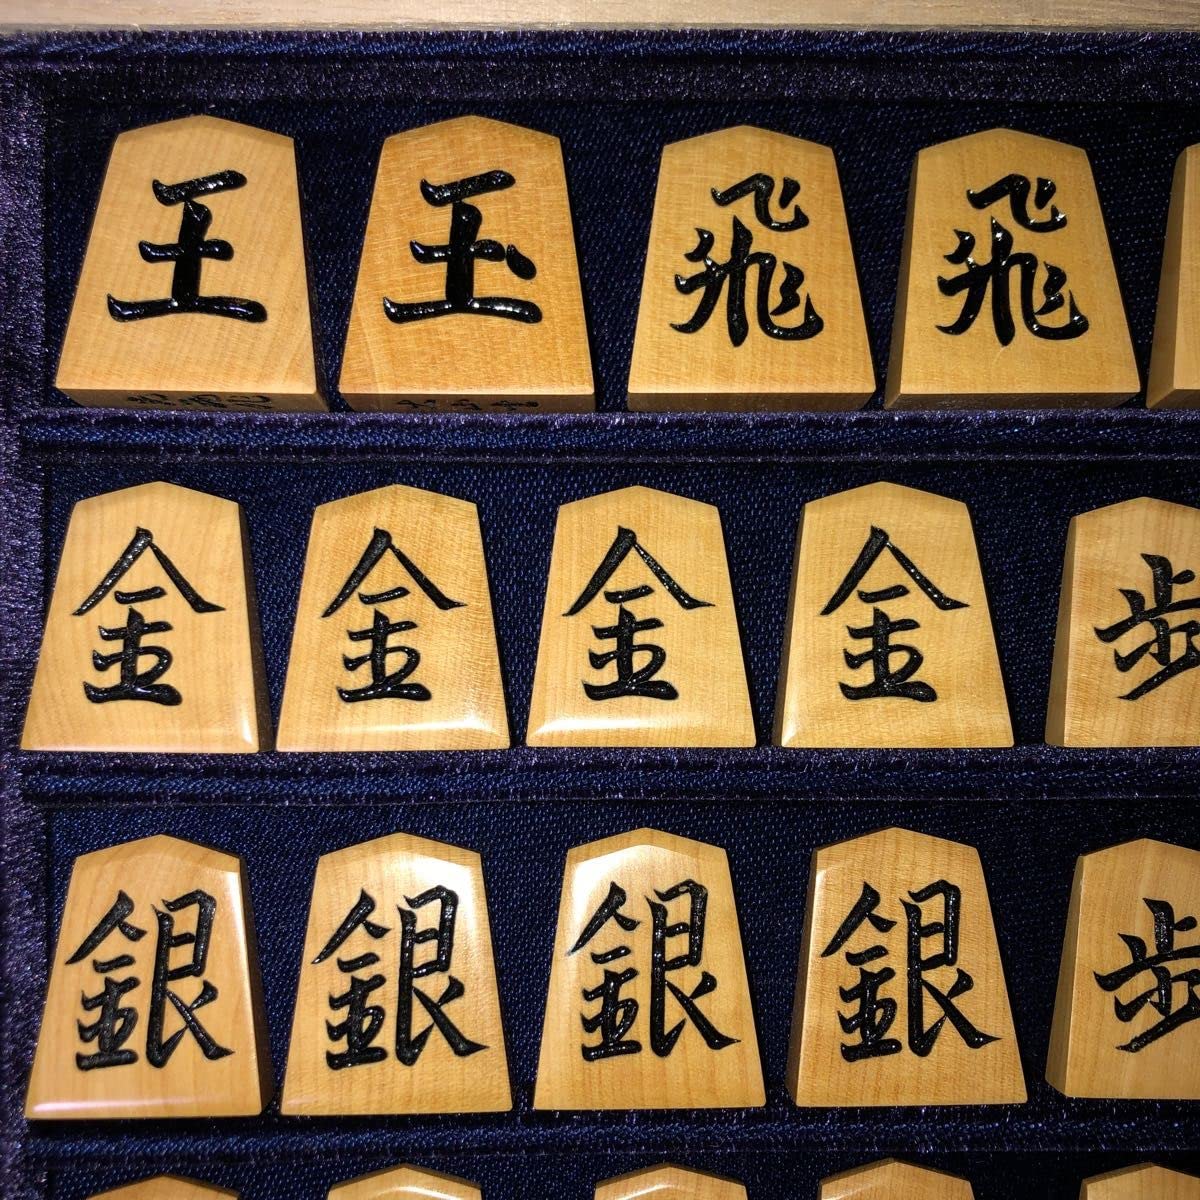 王 玉 飛 飛
金 金 金 金 歩
銀 銀 銀 銀 歩